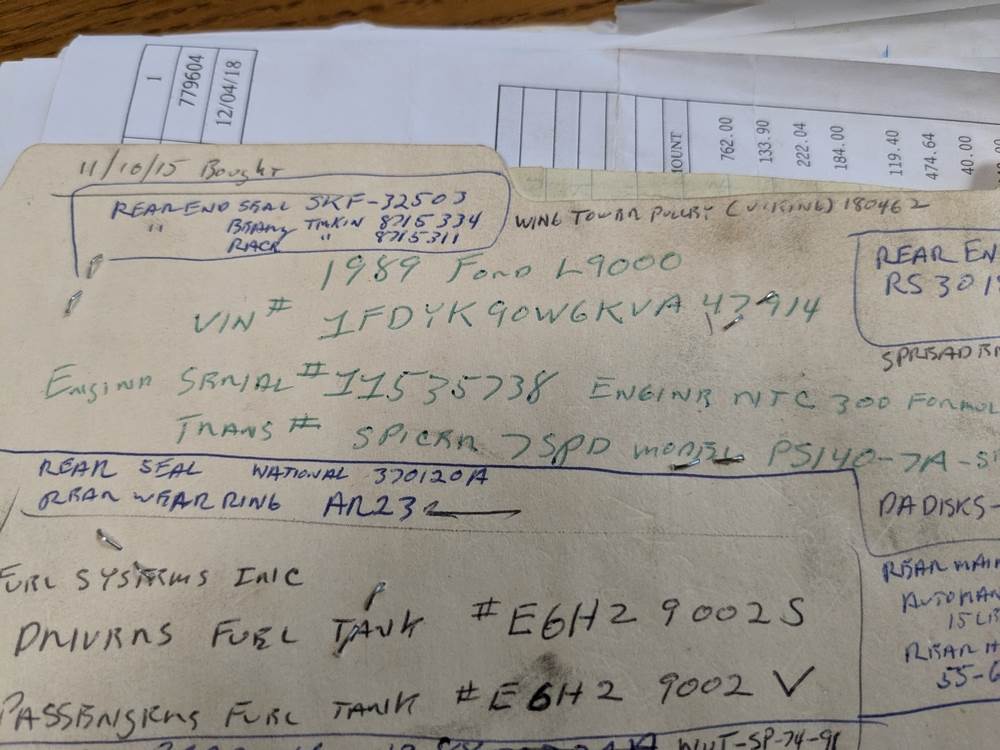 1
779604
12/04/18
MOUNT
762.00
133.90
222.04
184.00
119.40
474.64
40.00
11/10/15 Bought
REAR END SEAL SKF-32503
" BEARING TIMKIN 8715334
RACE " 8715311
WING TOWER PULLEY (VIKING) 180462
1989 Ford L9000
VIN # 1FDYK90W6KVA 47914
ENGINE SERIAL # 11535738 ENGINE NTC 300 FORMUL
TRANS # SPICER 7SPD MODEL PS140-7A-
REAR SEAL NATIONAL 370120A
REAR WEAR RING AR232
FUEL SYSTEMS INC
DRIVERS FUEL TANK # E6H2 9002S
PASSENGERS FUEL TANK # E6H2 9002 V
REAR EN
RS301
SPREADER
PADISKS-
REAR MAIN
15 LB
REAR H
55-6
WUT-SP-74-91